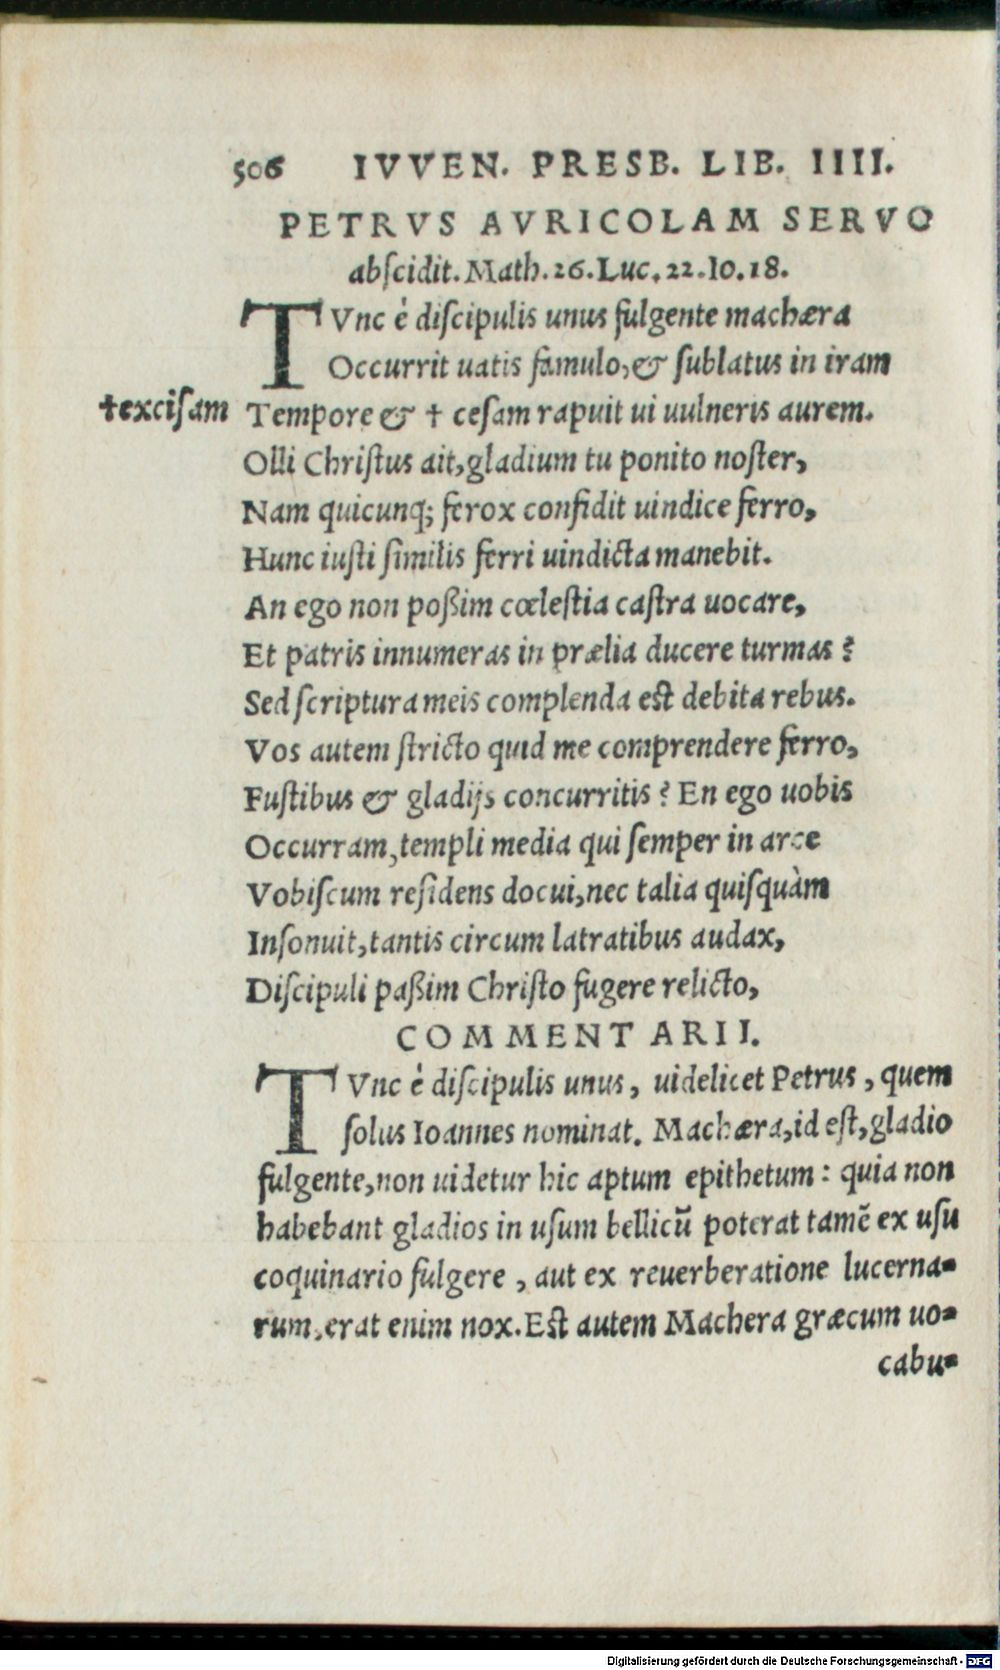 506 IVVEN. PRESB. LIB. IIII.
PETRVS AVRICOLAM SERVO
abſcidit. Math. 26. Luc. 22. Io. 18.
TVnc è diſcipulis unus fulgente machæra
Occurrit uatis famulo, & ſublatus in iram
†exciſam
Tempore & † ceſam rapuit ui uulneris aurem.
Olli Chriſtus ait, gladium tu ponito noſter,
Nam quicunq; ferox confidit uindice ferro,
Hunc iuſti ſimilis ferri uindicta manebit.
An ego non poßim cœleſtia caſtra uocare,
Et patris innumeras in prælia ducere turmas?
Sed ſcriptura meis complenda eſt debita rebus.
Vos autem ſtricto quid me comprendere ferro,
Fuſtibus & gladijs concurritis? En ego uobis
Occurram, templi media qui ſemper in arce
Vobiſcum reſidens docui, nec talia quiſquàm
Inſonuit, tantis circum latratibus audax,
Diſcipuli paßim Chriſto fugere relicto,
COMMENTARII.
TVnc è diſcipulis unus, uidelicet Petrus, quem
ſolus Ioannes nominat. Machæra, id eſt, gladio
fulgente, non uidetur hic aptum epithetum: quia non
habebant gladios in uſum bellicũ poterat tamẽ ex uſu
coquinario fulgere, aut ex reuerberatione lucerna-
rum, erat enim nox. Eſt autem Machera græcum uo-
cabu-
Digitalisierung gefördert durch die Deutsche Forschungsgemeinschaft - DFG